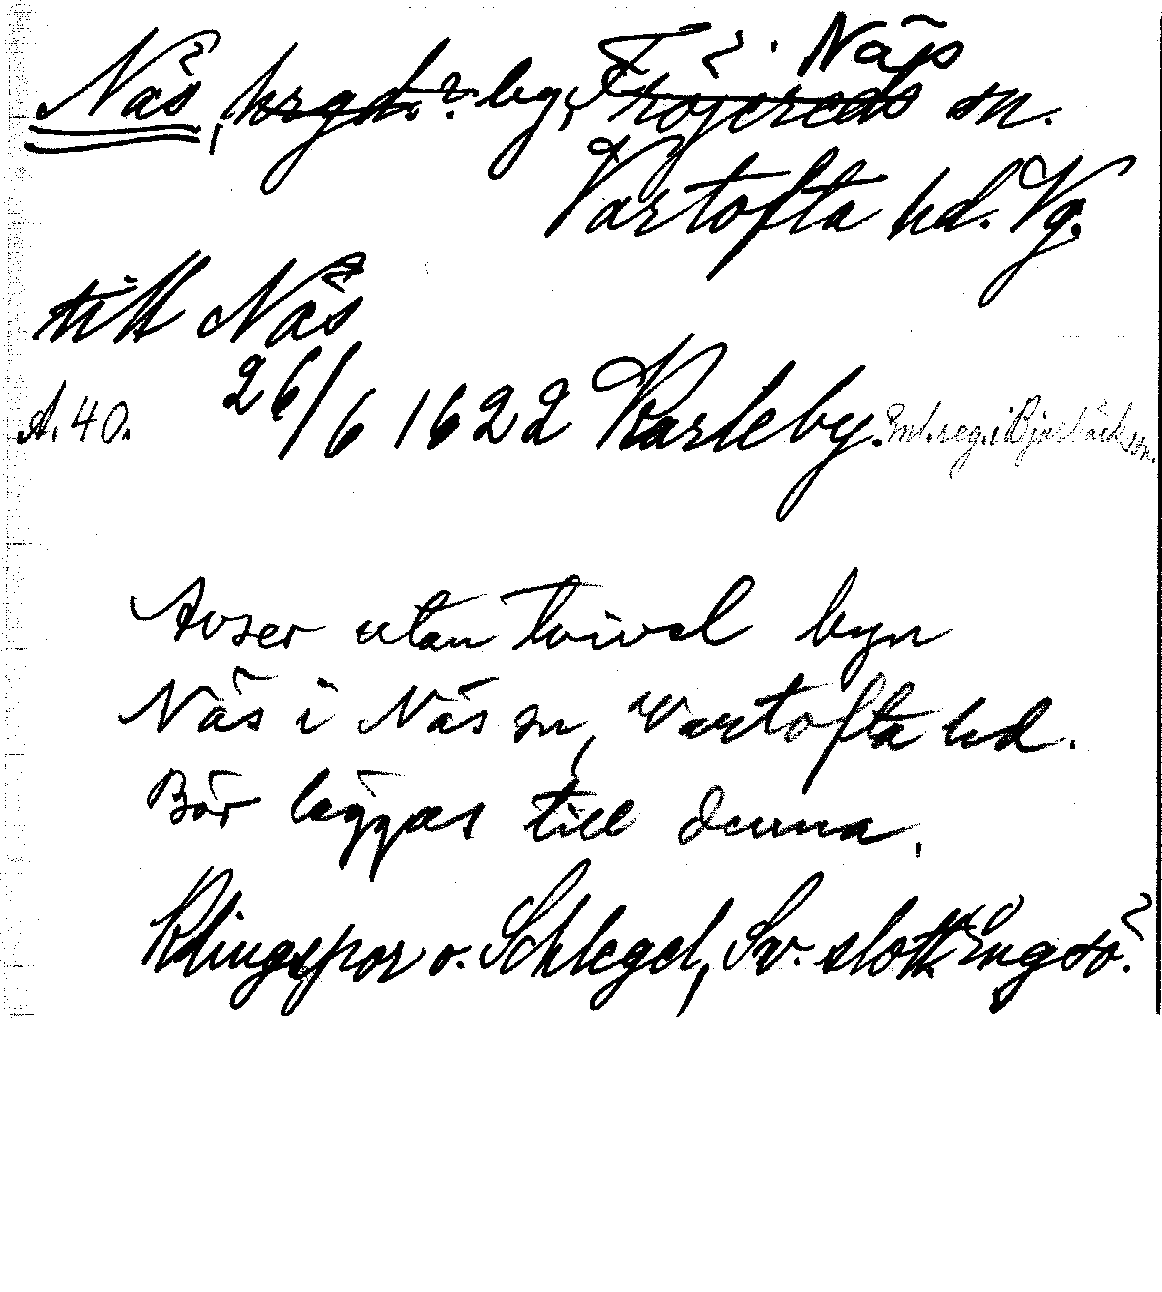 Näs
Näs, hrgd.? by, Fröjereds sn.
Vartofta hd. Vg.
till Näs
A. 40. 26/6 1622 Karleby. Enl. reg. i Bjurbäck sn.
Avser utan tvivel byn
Näs i Näs sn, Vartofta hd.
Bör läggas till denna.
Klingspor o. Schlegel, Sv. slott. Engsö.